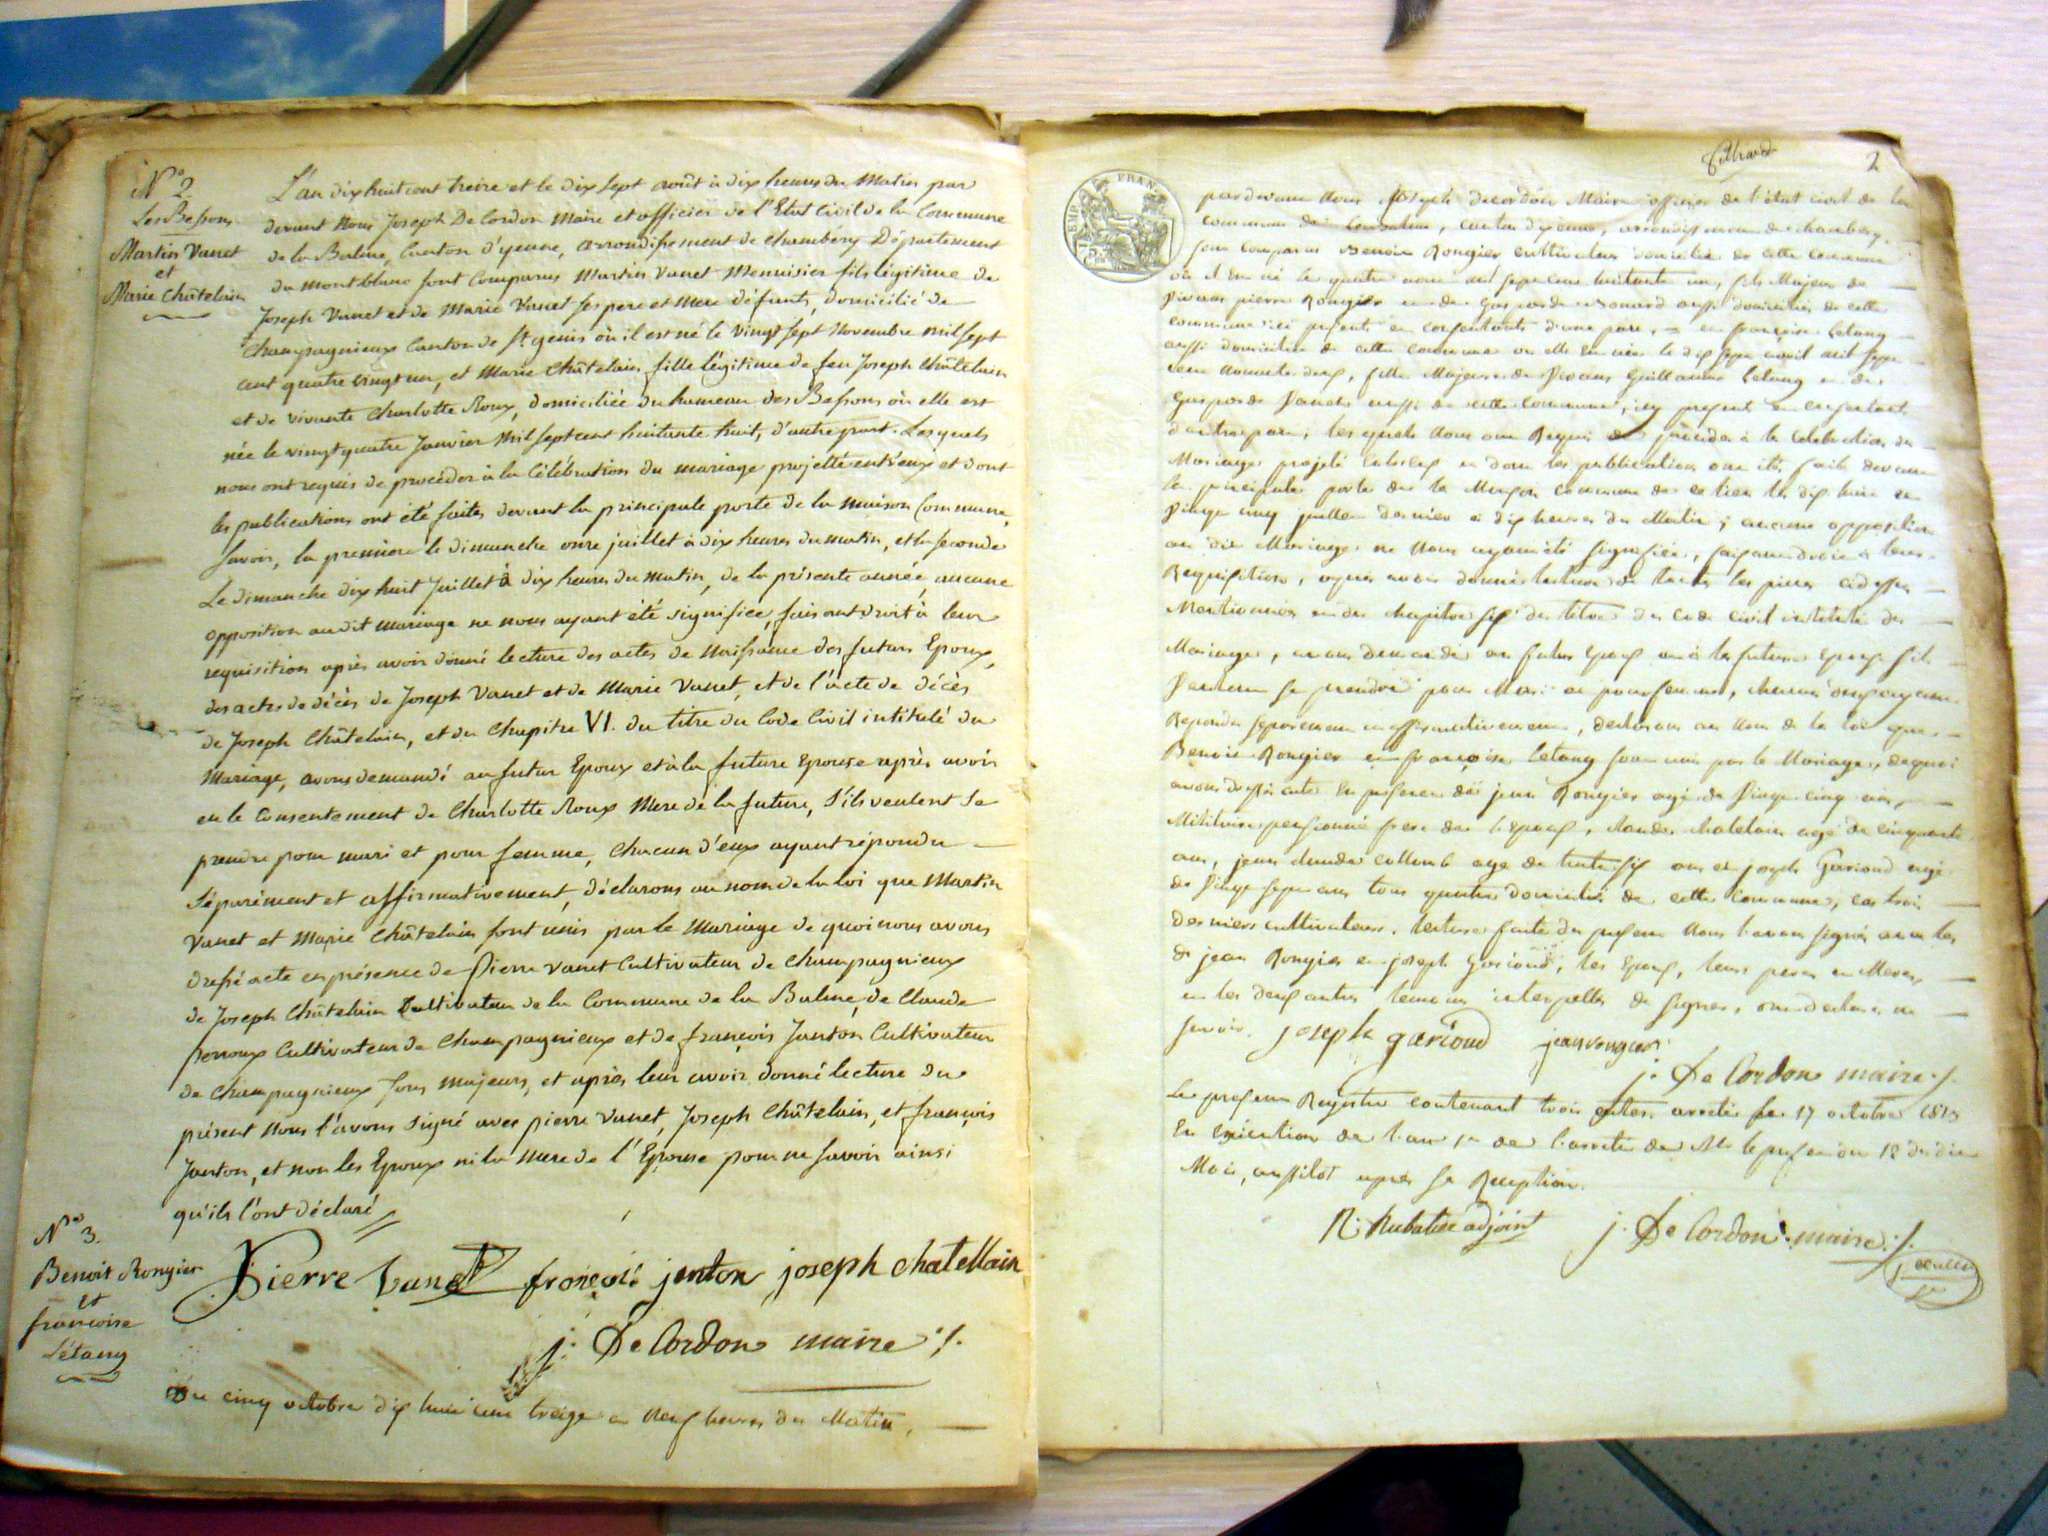 N° 2
Les Bessons
Martin Vanet
et
Marie Châtelain
L'an dix huit cent treize et le dix sept août à dix heures du Matin par
devant Nous Joseph De Cordon Maire et officier de l'Etat Civil de la Commune
de la Balme, Canton d'yenne, arrondissement de Chambéry Département
du Montblanc sont Comparus Martin Vanet Menuisier fils légitime de
Joseph Vanet et de Marie Vanet ses pere et Mere défunts, domicilié de
Champagnieux Canton de St genis où il est né le vingt sept Novembre mil sept
cent quatre vingt un, et Marie Châtelain fille légitime de feu Joseph Châtelain
et de vivante Charlotte Roux, domiciliée du hameau des Bessons où elle est
née le vingt quatre Janvier Mil sept cent huitante huit, d'autre part. Lesquels
nous ont requis de procéder à la Célébration du mariage projetté entr'eux et dont
les publications ont été faites devant la principale porte de la maison Commune,
Savoir, la premiere le dimanche onze juillet à dix heures du matin, et la seconde
Le dimanche dix huit Juillet à dix heures du matin, de la présente année, aucune
opposition au dit mariage ne nous ayant été signifiée, faisant droit à leur
requisition après avoir donné lecture des actes de Naissance des futurs Epoux,
des actes de décès de Joseph Vanet et de Marie Vanet, et de l'acte de décès
de Joseph Châtelain, et du Chapitre VI. du titre du Code Civil intitulé du
Mariage, avons demandé au futur Epoux et à la future Epouse après avoir
eu le Consentement de Charlotte Roux Mere de la future, s'ils veulent se
prendre pour mari et pour femme, Chacun d'eux ayant répondu
Séparément et affirmativement, déclarons au nom de la loi que Martin
Vanet et Marie Châtelain sont unis par le Mariage de quoi nous avons
dressé acte en présence de Pierre Vanet Cultivateur de Champagnieux
de Joseph Châtelain Cultivateur de la Commune de la Balme, de Claude
perroux Cultivateur de Champagnieux et de françois Janton Cultivateur
de Champagnieux tous majeurs, et après leur avoir donné lecture du
présent Nous l'avons signé avec pierre Vanet, Joseph Châtelain, et françois
Janton, et non les Epoux ni la Mere de l'Epouse pour ne savoir ainsi
qu'ils l'ont déclaré
Pierre Vanet françois janton joseph chatellain
j. De Cordon maire
N° 3.
Benoit Rongier
et
françoise
Létang
Du cinq octobre dix huit cent treize a neuf heures du Matin,
2
EMP FRAN
75
par devant Nous Joseph decordon Maire officier de l'état civil de la
commune de Labalme, canton d'yenne, arrondissement de chambery
sont comparus Benoit Rongier cultivateur domicilié de cette commune
où il est né le quatre mil sept cent huitante un, fils Majeur de
Vivans pierre Rongier et de aussi domiciliés de cette
commune ici présents et consentants d'une part, et françoise Letang
aussi domiciliée de cette commune où elle est née le dix sept avril mil sept
cent nonante deux, fille Majeure de Vivans Guillaume Letang et de
aussi de cette commune, icy present et consentant
d'autre part; les quels Nous ont Requis de procéder à la celebration du
Mariage projeté entr'eux et dont les publications ont été faites devant
la principale porte de la Maison commune de ce lieu les dix huit et
Vingt cinq juillet dernier à dix heures du Matin; aucune opposition
au dit Mariage ne Nous ayant été signifiée, faisant droit à leur
Requisition, après avoir donné lecture de toutes les pieces cidessus
Mentionnées et du chapitre six du titre du Code civil intitulé du
Mariage, avons demandé au futur Epoux et à la future Epouse s'ils
Veulent se prendre pour Mari et pour femme, chacun d'eux ayant
Repondu séparement et affirmativement, declarons au Nom de la loi que
Benoit Rongier et françoise Letang sont unis par le Mariage, de quoi
avons dressé acte En presence de jean Rongier agé de Vingt cinq ans,
Militaire pensionné frere de l'Epoux, claude chatelain agé de cinquante
ans, jean claude collomb agé de trente six ans et joseph Garioud agé
de Vingt sept ans tous quatre domiciliés de cette commune, ces trois
derniers cultivateurs. lecture faite du present Nous l'avons signé avec les
dt jean Rongier et joseph Garioud, les Epoux, leurs peres et Meres,
et les deux autres temoins interpellés de signer, ont declaré ne
savoir.
joseph garioud jean rongier
j. De Cordon maire
Le present Registre contenant trois actes arreté le 17 octobre 1813
En Execution de l'art 1er de l'arreté de Mr le prefet du 12 du dit
Mois, aussitot apres sa Reception.
adjoint j. De Cordon maire